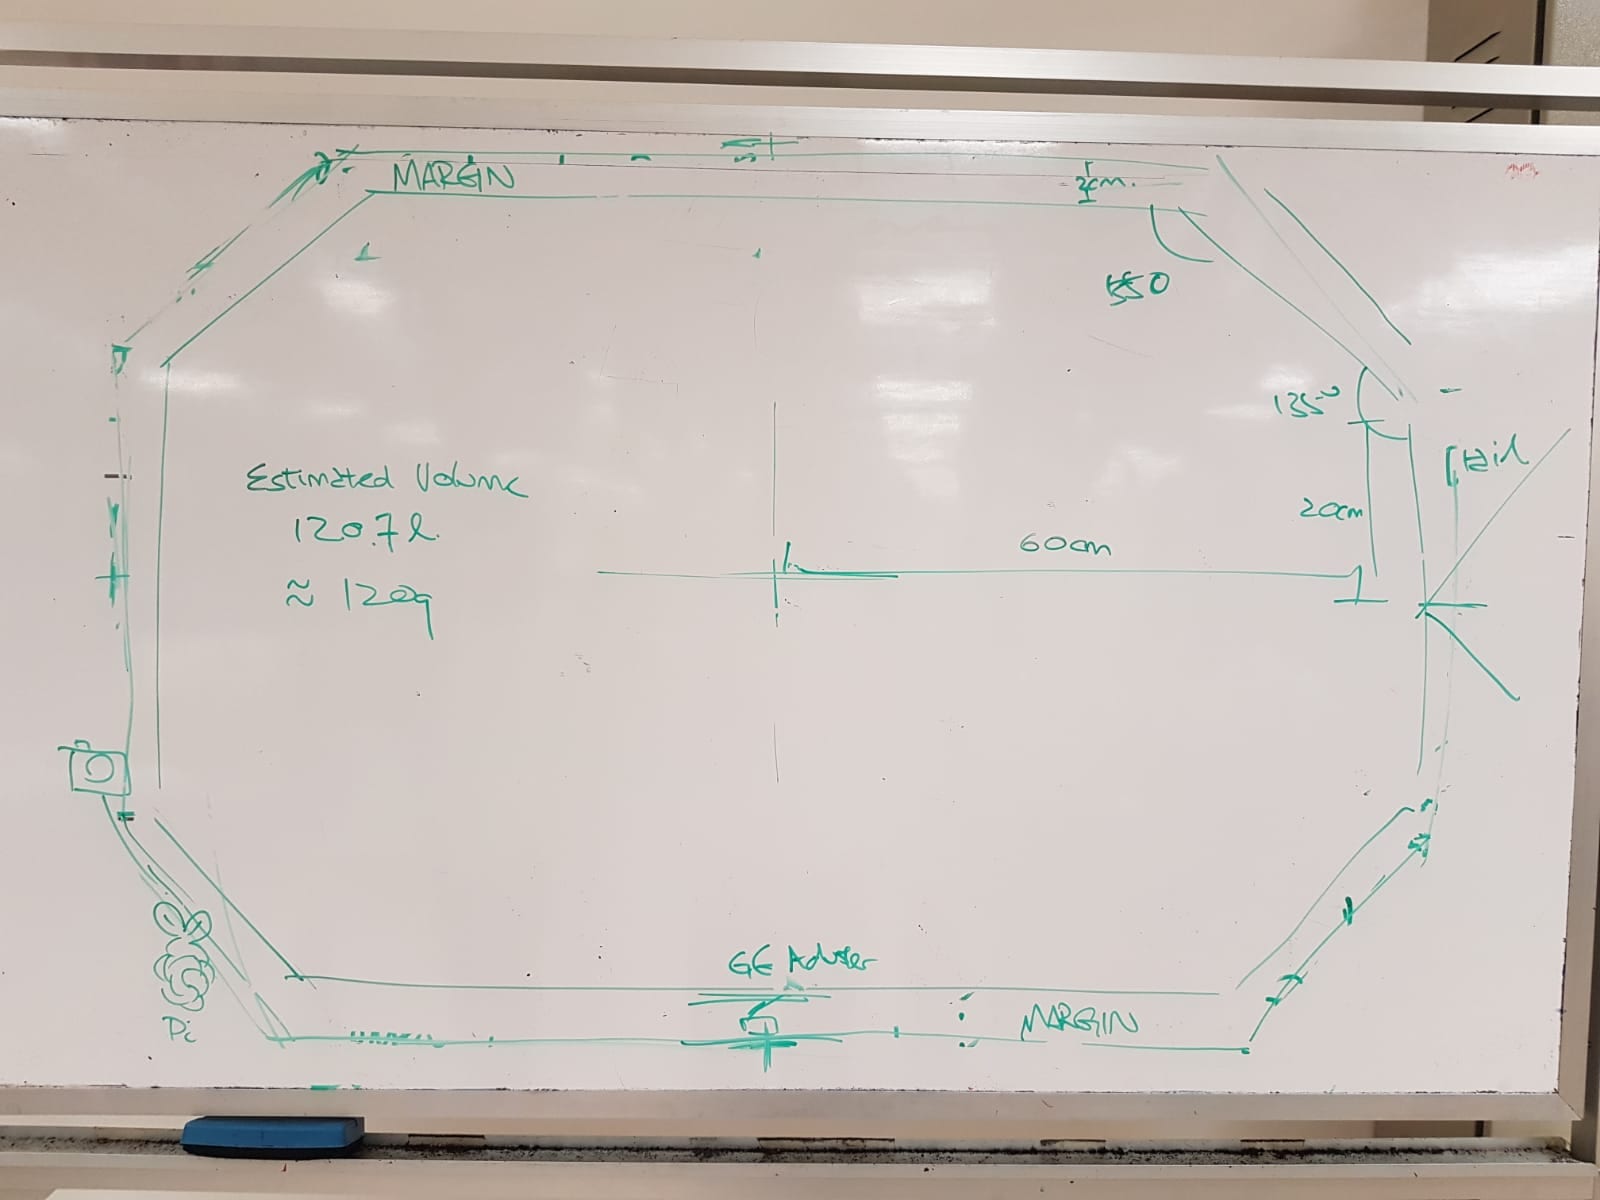 MARGIN
2cm.
135°
20cm
60cm
Estimated Volume
120.7 l.
≈ 120g
GE
MARGIN
Pi